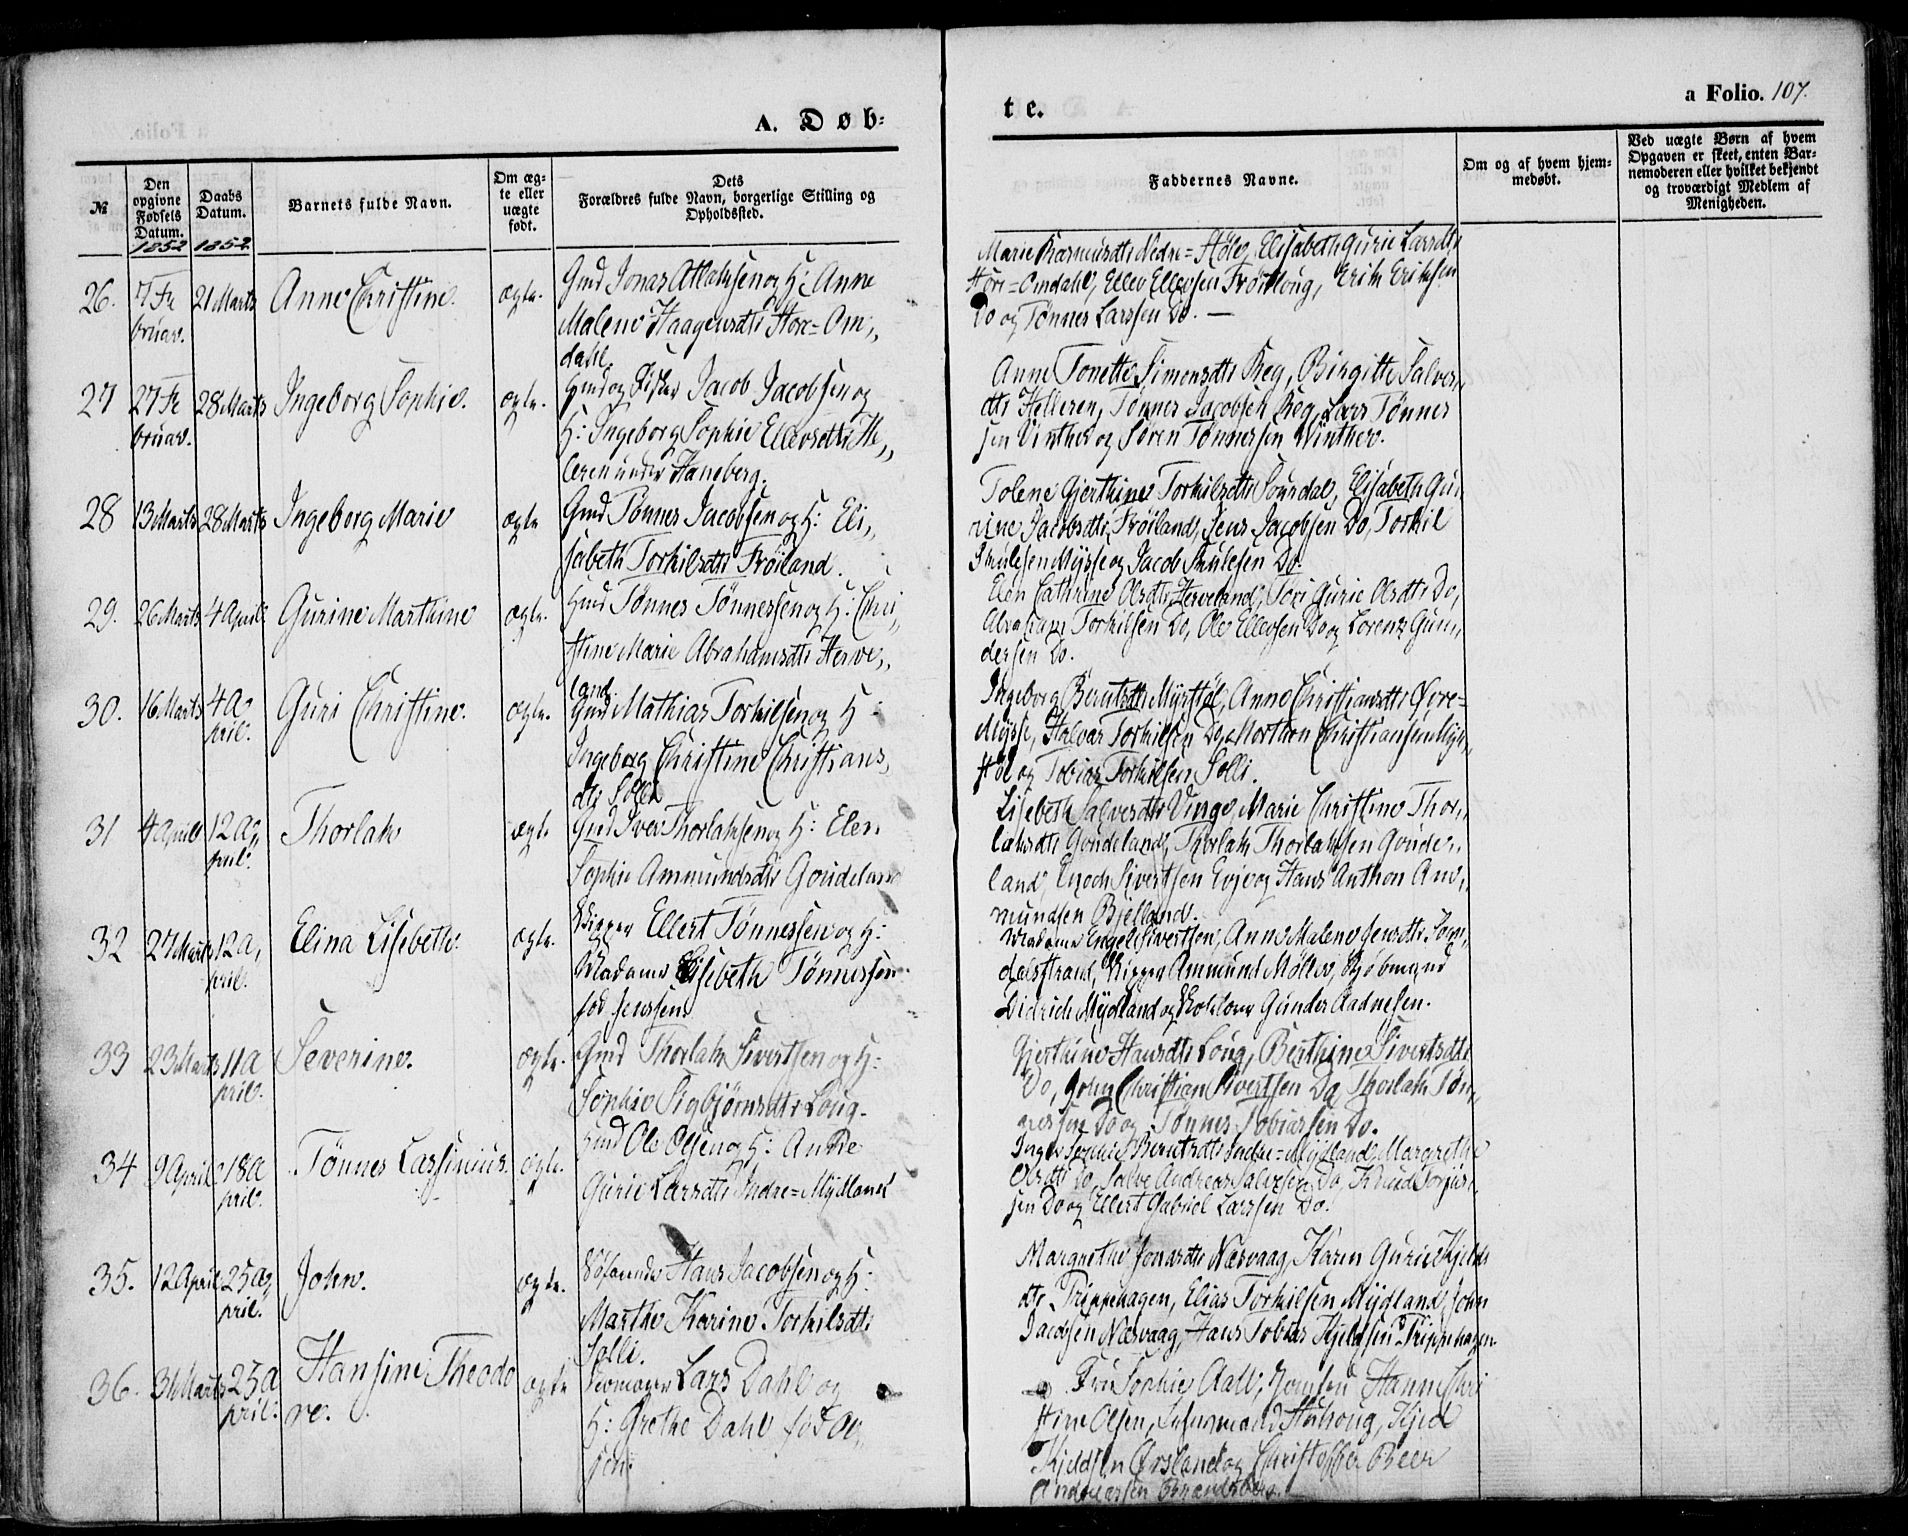 A. Døb-
te.
a Folio. 107.
№
Den opgivne Fødsels Datum.
1852
Daabs Datum.
1852
Barnets fulde Navn.
Om ægte eller uægte født.
Dets Forældres fulde Navn, borgerlige Stilling og Opholdssted.
Faddernes Navne.
Om og af hvem hjemmedøbt.
Ved uægte Børn af hvem Opgaven er skeet, enten Barnemoderen eller hvilket bekjendt og troværdigt Medlem af Menigheden.
26. 7 Fe 21 Marts Anne Christine. ægte. Gmd Jonas Atlaksen og H: Anne
bruar. Malene Haagensdtr Store=Om,,
dahl
Marie Rasmusdtr Nedre=Støle, Elisabeth Gurie Larsdtr
Store=Omdahl, Ellev Ellevsen Frøitlong, Erik Eriksen
Do og Tønnes Larssen Do. —
27 27 Fe 28 Marts Ingeborg Sophie. ægte. Hmd og Fisker Jacob Jacobsen og
bruar. H: Ingeborg Sophie Ellevsdtr He,,
leren under Haneberg.
Anne Tonette Simonsdtr Reg, Birgitte Salves,,
dtr Helleren, Tønnes Jacobsen Reg, Lars Tønnes
sen Vinther og Søren Tønnessen Winther.
28 13 Marts 28 Marts Ingeborg Marie ægte Gmd Tønnes Jacobsen og H: Eli,,
sabeth Torkilsdtr Frøiland.
Tolene Gjerthine Torkilsdtr Sourdal, Elisabeth Gu,,
rine Jacobsdtr Frøiland, Jens Jacobsen Do, Torkil
Skulesen Mysse og Jacob Skulesen Do.
29. 26 Marts 4 April Gurine Marthine ægte. Hmd Tønnes Tønnessen og H: Chri,,
stine Marie Abrahamsdtr Herve,,
land.
Elen Cathrine Olsdtr Herveland, Siri Gurie Olsdtr Do,
Abraham Torkilsen Do, Ole Ellevsen Do og Lorenz Gun,,
dersen Do.
30. 16 Marts 4 A Guri Christine. ægte. Gmd Mathias Torkilsen og H:
pril. Ingeborg Christine Christians,,
dtr Solli
Ingeborg Berntsdtr Myrstøl, Anne Christiansdtr Øvre=
Mysse, Halvar Torkilsen Do, Morthen Christiansen Myr,,
støl og Tobias Torkilsen Solli.
31 4 April 12 Ap, Thorlak ægte Gmd Iver Thorlaksen og H: Elen
pril. Sophie Ammundsdtr Goudeland
Lisebeth Salvesdtr Vinge, Marie Christine Thor,,
laksdtr Goudeland, Thorlak Thorlaksen Goude,,
land, Enoch Sivertsen Evje og Hans Anthon Am,,
mundsen Bjelland.
32 27 Marts 12 A, Elina Lisebeth. ægte. Skipper Ellert Tønnessen og H:
pril. Madame Lisebeth Tønnessen
fød Jenssen
Madame Engel Sivertsen, Anne Malene Jensdtr Sogn,,
dalsstrand, Skipper Ammund Møller, Kjøbmand
Didrich Mydland og Skolelærer Gunder Aadnesen.
33 23 Marts 11 A Severine. ægte. Gmd Thorlak Sivertsen og H:
pril. Sophie Sigbjørnsdtr Loug.
Gjerthine Hansdtr Loug, Berthine Sivertsdtr
Do, John Christian Sivertsen Do, Thorlak Tøn,,
nessen Do og Tønnes Tobiassen Do.
34 9 April 18 A Tønnes Lassinius. ægte. Hmd Ole Olsen og H: Anne
pril. Gurie Larsdtr Indre=Mydland
Inger Sophie Berntsdtr Indre=Mydland, Margrethe
Olsdtr Do, Salve Andreas Salvesen Do, Knud Torjus,,
sen Do og Ellert Gabriel Larssen Do.
35. 12 April 25 Ap, John. ægte. Søfarende Hans Jacobsen og H:
pril. Marthe Karine Torkilsdtr
Solli.
Margrethe Jonasdtr Næsvaag, Karen Gurie Kjelds
dtr Trippehagen, Elias Torkilsen Mydland, John
Jacobsen Næsvaag, Hans Tobias Kjeldsen Trippehagen
36. 31 Marts 25 A Hansine Theodo ægte Lars Dahl og
pril. re. H: Grethe Dahl fød Ol,,
sen.
Fru Sophie Aall, Jomfru Hanne Chri
stine Olsen, Kjeld
Kjeldsen Ørsland og Christoffer Beer
Andreassen